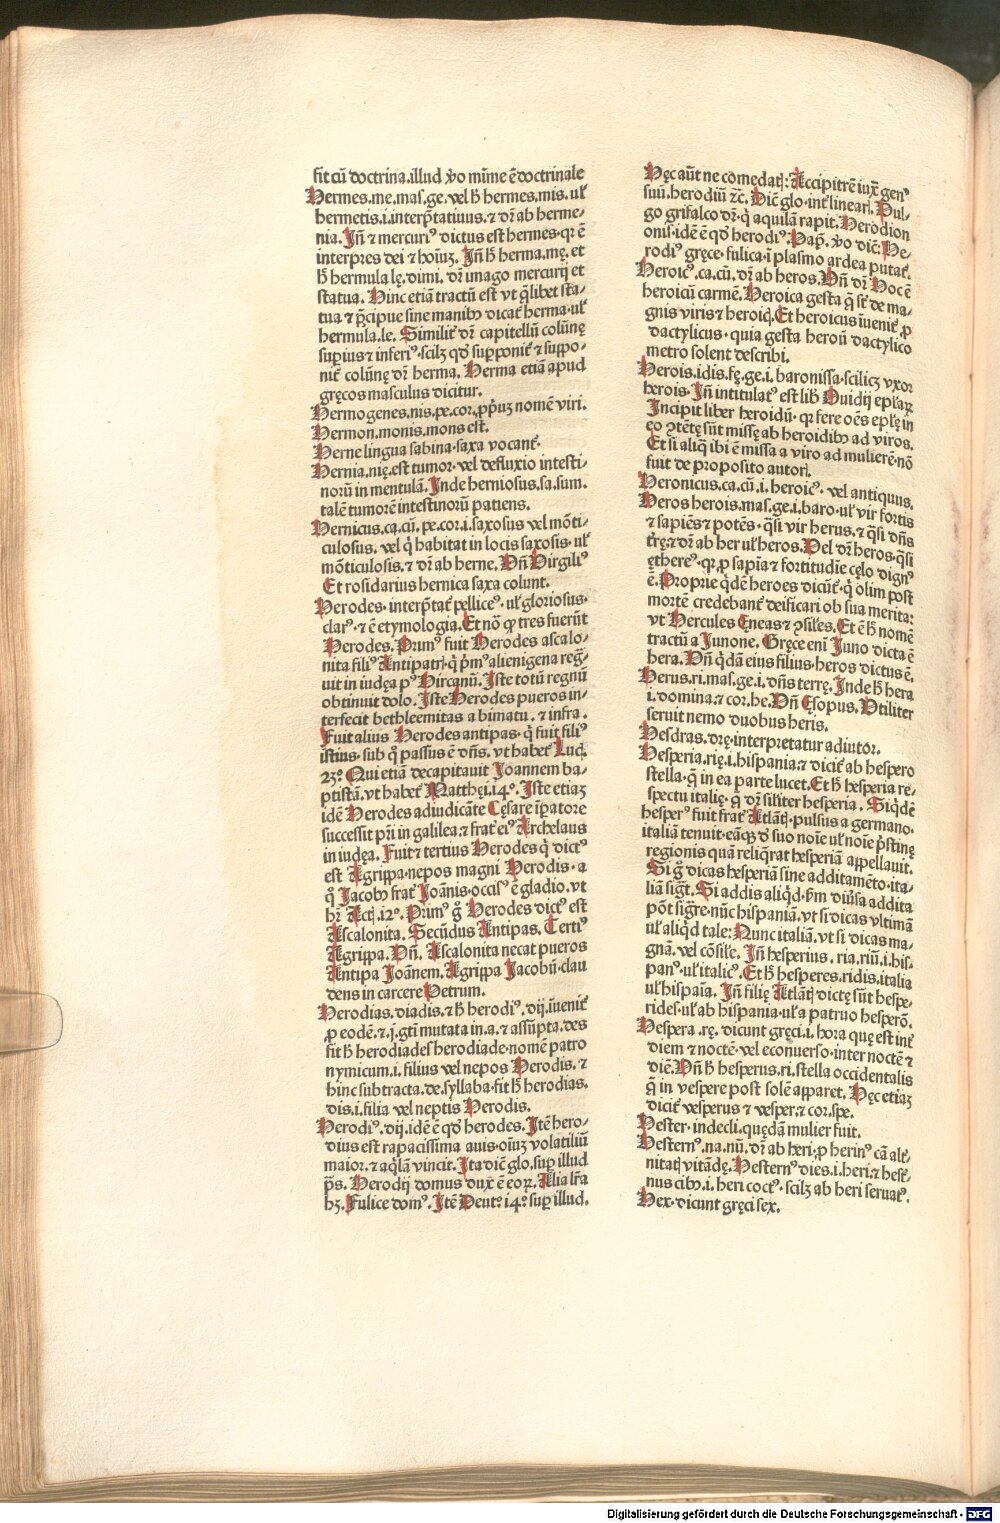 fit cū doctrina.illud ỽo mīme ē doctrinale
Hermes.me.mas.ge.vel h̄ hermes.mis. uł
hermetis.i.interp̄tatiuus.⁊ dr̄ ab herme-
nia. Jn̄ ⁊ mercuriꝰ dictus est hermes. qr ē
interpres dei ⁊ hoīuꝫ. Jn̄ h̄ herma.mę. et
h̄ hermula lę.dimi. dr̄ imago mercurij et
statua. Hinc etiā tractū est vt q̄libet sta-
tua ⁊ p̄cipue sine manibꝰ dicat̄ herma. uł
hermula.le. Similit̄ dr̄ capitellū colūnę
supius ⁊ inferiꝰ. scilꝫ qd̄ supponit̄ ⁊ suppo-
nit̄ colūnę dr̄ herma. Herma etiā apud
gręcos masculus dicitur.
Hermogenes.nis.pe.cor.ꝓpriuꝫ nomē viri.
Hermon.monis.mons est.
Herne lingua sabina. saxa vocant̄.
Hernia.nię.est tumor. vel defluxio intesti-
norū in mentulā. Jnde herniosus.sa.sum.
talē tumorē intestinorū patiens.
Hernicus.ca.cū. pe.cor.i.saxosus vel mōti-
culosus. vel q̄ habitat in locis saxosis. uł
mōticulosis. ⁊ dr̄ ab herne. Vn̄ Virgiliꝰ
Et rosidarius hernica saxa colunt.
Herodes. interp̄tat̄ pelliceꝰ. uł gloriosus.
clarꝰ. ⁊ ē etymologia. Et nō ꝙ tres fuerūt
Herodes. Primꝰ fuit Herodes ascalo-
nita filiꝰ Antipatri. q̄ p̄mꝰ alienigena reg-
uit in iudęa pꝰ Hircanū. Jste totū regnū
obtinuit dolo. Jste Herodes pueros in-
terfecit bethleemitas a bimatu. ⁊ infra.
Fuit alius Herodes antipas. q̄ fuit filiꝰ
istius. sub q̊ passus ē dn̄s. vt habet̄ Luc̄.
23º. Qui etiā decapitauit Joannem ba-
ptistā. vt habet̄ Matthęi.14º. Jste etiaꝫ
idē Herodes adiudicāte Cęsare īpatore
successit pr̄i in galilea. ⁊ frat̄ eiꝰ Archelaus
in iudęa. Fuit ⁊ tertius Herodes q̄ dictꝰ
est Agrippa. nepos magni Herodis. a
q̊ Jacobꝰ frat̄ Joānis. occisꝰ ē gladio. vt
hr̄ Act̄. 12º. Primꝰ g̊ Herodes dictꝰ est
Ascalonita. Secūdus Antipas. Tertiꝰ
Agrippa. Vn̄. Ascalonita necat pueros
Antipa Joānem. Agrippa Jacobū. clau
dens in carcere Petrum.
Herodias.diadis. ⁊ h̄ herodiꝰ.dij.īuenit̄
ꝓ eodē. ⁊.j.gt̄i mutata in.a. ⁊ assūpta.des
fit h̄ herodiades herodiade. nomē patro
nymicum.i.filius vel nepos Herodis. ⁊
hinc subtracta.de.syllaba. fit h̄ herodias.
dis.i.filia vel neptis Herodis.
Herodiꝰ. dij. idē ē qd̄ herodes. Jtē hero-
dius est rapacissima auis. oīuꝫ volatiliū
maior. ⁊ aq̄lā vincit. Jta dic̄ glo. sup̄ illud
p̄s. Herodij domus dux ē eoꝝ. Alia lr̄a
hꝫ. Fulice domꝰ. Jtē Deut̄. 14º. sup̄ illud.
Hęc aūt ne comedatj: Accipitrē iux̄ genꝰ
suū. herodiū ꝛc̄. Dic̄ glo. int̄linearj. Vul-
go grifalco dr̄. q̄ aquilā rapit. Herodion
onis. idē ē qd̄ herodiꝰ. Pap̄. ỽo dic̄. He-
rodiꝰ gręce. fulica. i plasmo ardea putat̄.
Heroicꝰ.ca.cū. dr̄ ab heros. Vn̄ dr̄ Hoc ē
heroicū carmē. Heroica gesta q̄ st̄ de ma-
gnis viris ⁊ heroicj. Et heroicus īuenit̄ ꝓ
dactylicus. quia gesta heroū dactylico
metro solent describi.
Herois.idis.fę.ge.i. baronissa. scilicꝫ vxor
herois. Jn̄ intitulatꝰ est lib̄ Ouidij ep̄laꝝ
Jncipit liber heroidū. qr fere oēs ep̄lę in
eo ꝯtētę sūt missę ab heroidibꝰ ad viros.
Et si aliq̄ ibi ē missa a viro ad mulierē. nō
fuit de proposito autorj.
Heronicus.ca.cū.i.heroicꝰ. vel antiquus.
Heros herois.mas.ge.i.baro. uł vir fortis
⁊ sapiēs ⁊ potēs. q̄si vir herus. ⁊ q̄si dn̄s
tr̄ę. ⁊ dr̄ ab her uł heros. Vel dr̄ heros. q̄si
ęthereꝰ. qr ꝓ sapīa ⁊ fortitudīe cęlo dignꝰ
ē. Proprie q̄dē heroes dicūt̄. q̄ olim post
mortē credebant̄ deificari ob sua merita:
vt Hercules Ęneas ⁊ ꝯsiles. Et ē h̄ nomē
tractū a Junone. Gręce eni Juno dicta ē
hera. Vn̄ q̄dā eius filius. heros dictus ē.
Herus.ri.mas.ge.i.dn̄s terrę. Jnde h̄ hera
i.domina. ⁊ cor.he. Vn̄ Ęsopus. Vtiliter
seruit nemo duobus heris.
Hesdras.drę. interpretatur adiutor.
Hesperia.rię.i.hispania. ⁊ dicit̄ ab hespero
stella. q̄ in ea parte lucet. Et h̄ hesperia re-
spectu italię. q̄ dr̄ siliter hesperia. Siq̄dē
hesperꝰ fuit frat̄ Atlātj. pulsus a germano.
italiā tenuit. eāqꝫ d̄ suo noīe uł noīe p̄stinę
regionis quā reliq̄rat hesperiā appellauit.
Si g̊ dicas hesperiā sine additamēto. ita-
liā sigt̄. Si addis aliq̄d. ẜm diūsa addita
pōt sigr̄e. nūc hispaniā. vt si dicas vltimā
uł aliq̄d tale: Nunc italiā. vt si dicas ma-
gnā. vel cōsile. Jn̄ hesperius. ria. riū. i. his-
panꝰ. uł italicꝰ. Et h̄ hesperes. ridis. italia
uł hispaīa. Jn̄ filię Atlātj dictę sūt hespe-
rides. uł ab hispania. uł a patruo hesperō.
Hespera .rę. dicunt gręci.i. hora quę est int̄
diem ⁊ noctē. vel econuerso. inter noctē ⁊
diē. Vn̄ h̄ hesperus.ri.stella occidentalis
q̄ in vespere post solē apparet. Hęc etiaꝫ
dicit̄ vesperus ⁊ vesper. ⁊ cor.spe.
Hester. indecli. quędā mulier fuit.
Hesternꝰ.na.nū. dr̄ ab heri. ꝓ herinꝰ cā alt̄-
nitatj vitādę. Hesternꝰ dies.i.heri. ⁊ hest̄-
nus cibꝰ.i. heri coctꝰ. scilꝫ ab heri seruatꝰ.
Hex. dicunt gręci sex.
Digitalisierung gefördert durch die Deutsche Forschungsgemeinschaft - DFG